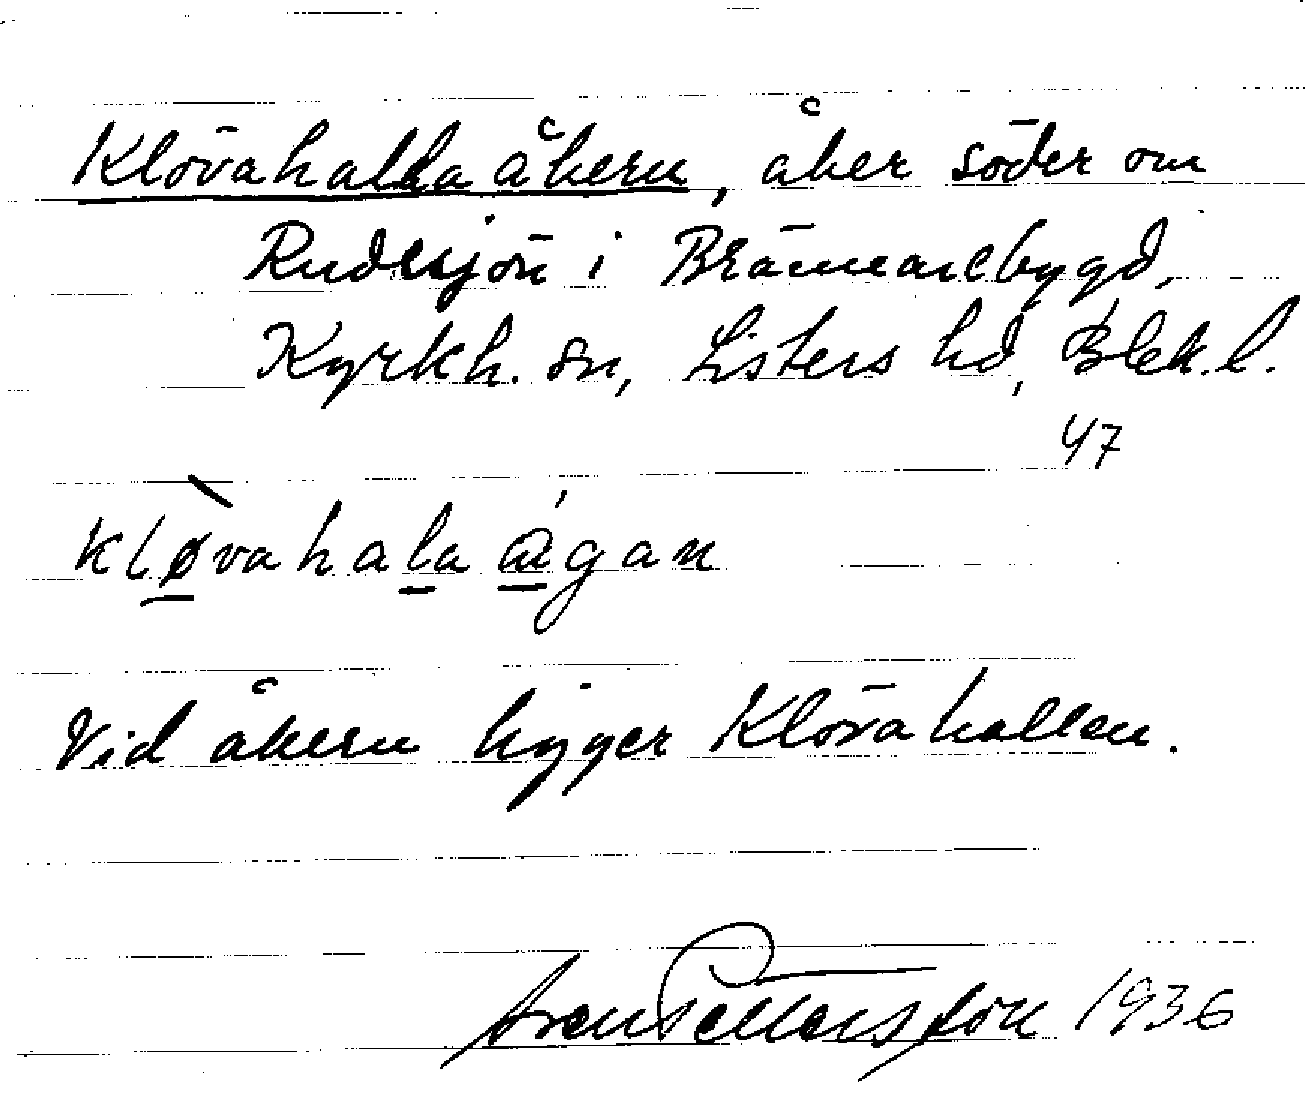 Klövahallaåkern, åker söder om
Rudesjön i Brämarebygd,
Kyrkh. sn, Listers hd, Blek. l.
47
kløvahala ågan
Vid åkern ligger Klövahallen.
Sven Pettersson 1936